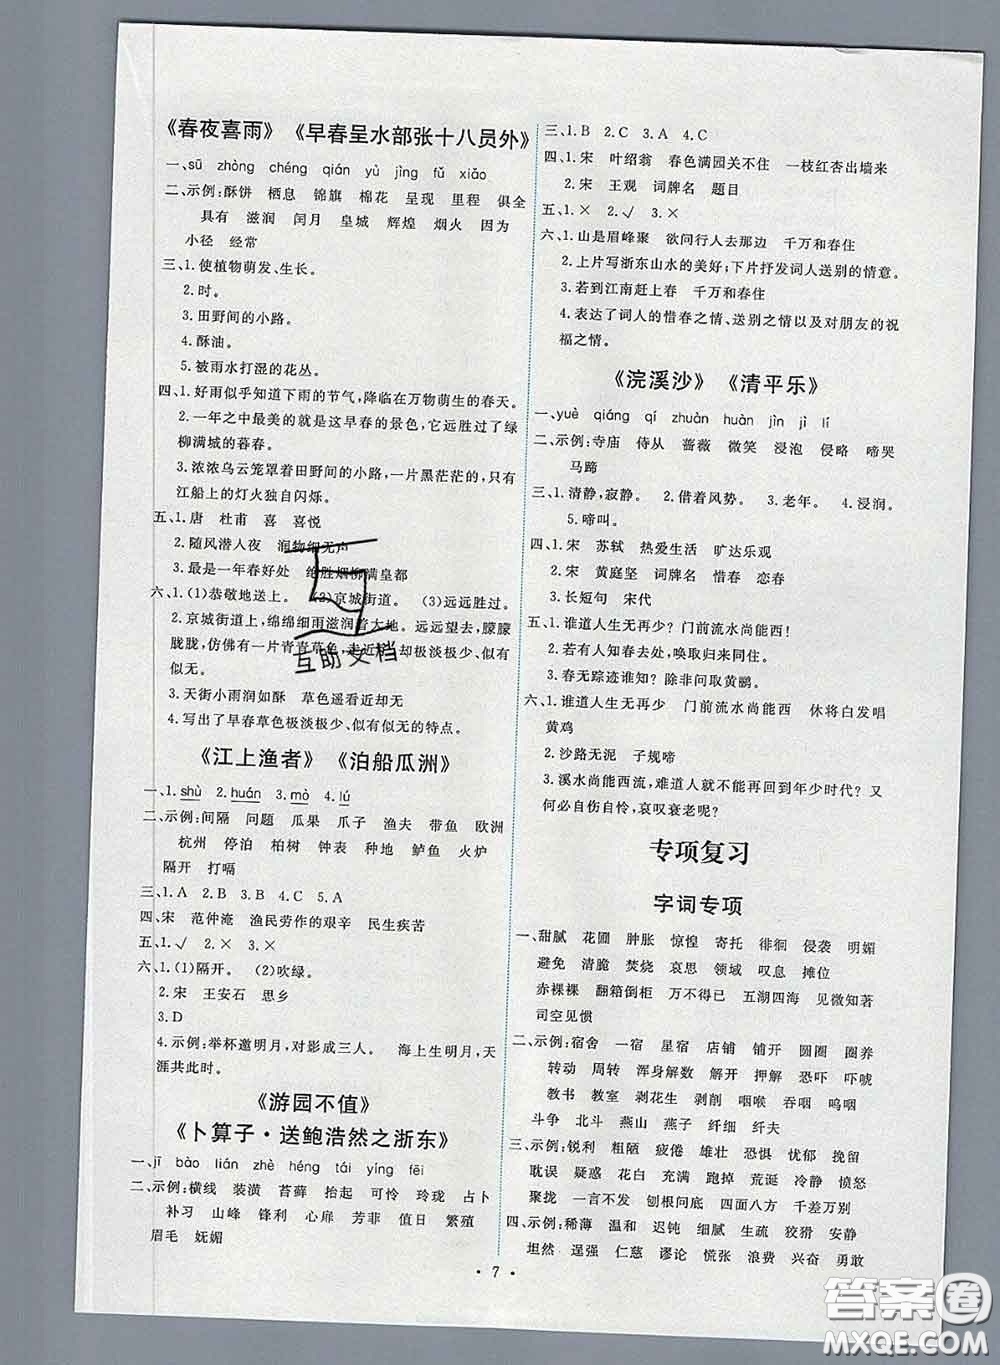 《春夜喜雨》 《早春呈水部张十八员外》
一、sū zhòng chéng qián yù jìng fǔ xiǎo
二、示例:酥饼 栖息 锦旗 棉花 呈现 里程 俱全
具有 滋润 闰月 皇城 辉煌 烟火 因为
小径 经常
三、1.使植物萌发、生长。
2.时。
3.田野间的小路。
4.酥油。
5.被雨水打湿的花丛。
四、1.好雨似乎知道下雨的节气,降临在万物萌生的春天。
2.一年之中最美的就是这早春的景色,它远胜过了绿
柳满城的暮春。
3.浓浓乌云笼罩着田野间的小路,一片黑茫茫的,只有
江船上的灯火独自闪烁。
五、1.唐 杜甫 喜 喜悦
2.随风潜入夜 润物细无声
3.最是一年春好处 绝胜烟柳满皇都
六、1.(1)恭敬地送上。 (2)京城街道。 (3)远远胜过。
2.京城街道上,绵绵细雨滋润着大地。远远望去,朦朦
胧胧,仿佛有一片青青草色,走近了却极淡极少、似有
似无。
3.天街小雨润如酥 草色遥看近却无
4.写出了早春草色极淡极少、似有似无的特点。
《江上渔者》 《泊船瓜洲》
一、1.shù 2.huán 3.mò 4.lú
二、示例:间隔 问题 瓜果 爪子 渔夫 带鱼 欧洲
杭州 停泊 柏树 钟表 种地 鲈鱼 火炉
隔开 打嗝
三、1.A 2.B 3.B 4.C 5.A
四、宋 范仲淹 渔民劳作的艰辛 民生疾苦
五、1.√ 2.× 3.×
六、1.(1)隔开。 (2)吹绿。
2.宋 王安石 思乡
3.D
4.示例:举杯邀明月,对影成三人。 海上生明月,天
涯共此时。
《游园不值》
《卜算子·送鲍浩然之浙东》
一、jī bào lián zhè héng tái yíng fēi
二、示例:横线 装潢 苔藓 抬起 可怜 玲珑 占卜
补习 山峰 锋利 心扉 芳菲 值日 繁殖
眉毛 妩媚
三、1.B 2.C 3.A 4.C
四、1.宋 叶绍翁 春色满园关不住 一枝红杏出墙来
2.宋 王观 词牌名 题目
五、1.× 2.√ 3.×
六、1.山是眉峰聚 欲问行人去那边 千万和春住
2.上片写浙东山水的美好;下片抒发词人送别的情意。
3.若到江南赶上春 千万和春住
4.表达了词人的惜春之情、送别之情以及对朋友的祝
福之情。
《浣溪沙》 《清平乐》
一、yuè qiáng qí zhuàn huàn jìn jì lí
二、示例:寺庙 侍从 蔷薇 微笑 浸泡 侵略 啼哭
马蹄
三、1.清静,寂静。 2.借着风势。 3.老年。 4.浸润。
5.啼叫。
四、1.宋 苏轼 热爱生活 旷达乐观
2.宋 黄庭坚 词牌名 惜春 恋春
3.长短句 宋代
五、1.谁道人生无再少?门前流水尚能西!
2.若有人知春去处,唤取归来同住。
3.春无踪迹谁知?除非问取黄鹂。
六、1.谁道人生无再少 门前流水尚能西 休将白发唱
黄鸡
2.沙路无泥 子规啼
3.溪水尚能西流,难道人就不能再回到年少时代?又
何必自伤自怜,哀叹衰老呢?
专项复习
字词专项
一、甜腻 花圃 肿胀 惊惶 寄托 徘徊 侵袭 明媚
避免 清脆 焚烧 哀思 领域 叹息 摊位
赤裸裸 翻箱倒柜 万不得已 五湖四海 见微知著
司空见惯
二、示例:宿舍 一宿 星宿 店铺 铺开 圆圈 圈养
转动 周转 浑身解数 解开 押解 恐吓 吓唬
教书 教室 剥花生 剥削 咽喉 吞咽 呜咽
斗争 北斗 燕山 燕子 纤细 纤夫
三、示例:锐利 粗陋 疲倦 雄壮 恐惧 忧郁 挽留
耽误 疑惑 花白 充满 跑掉 荒诞 冷静 愤怒
聚拢 一言不发 刨根问底 四面八方 千差万别
四、示例:稀薄 温和 迟钝 细腻 生疏 狡猾 安静
坦然 逞强 仁慈 谬论 慌张 浪费 兴奋 勇敢
• 7 •
互助文档
答案圈
MXQE.COM